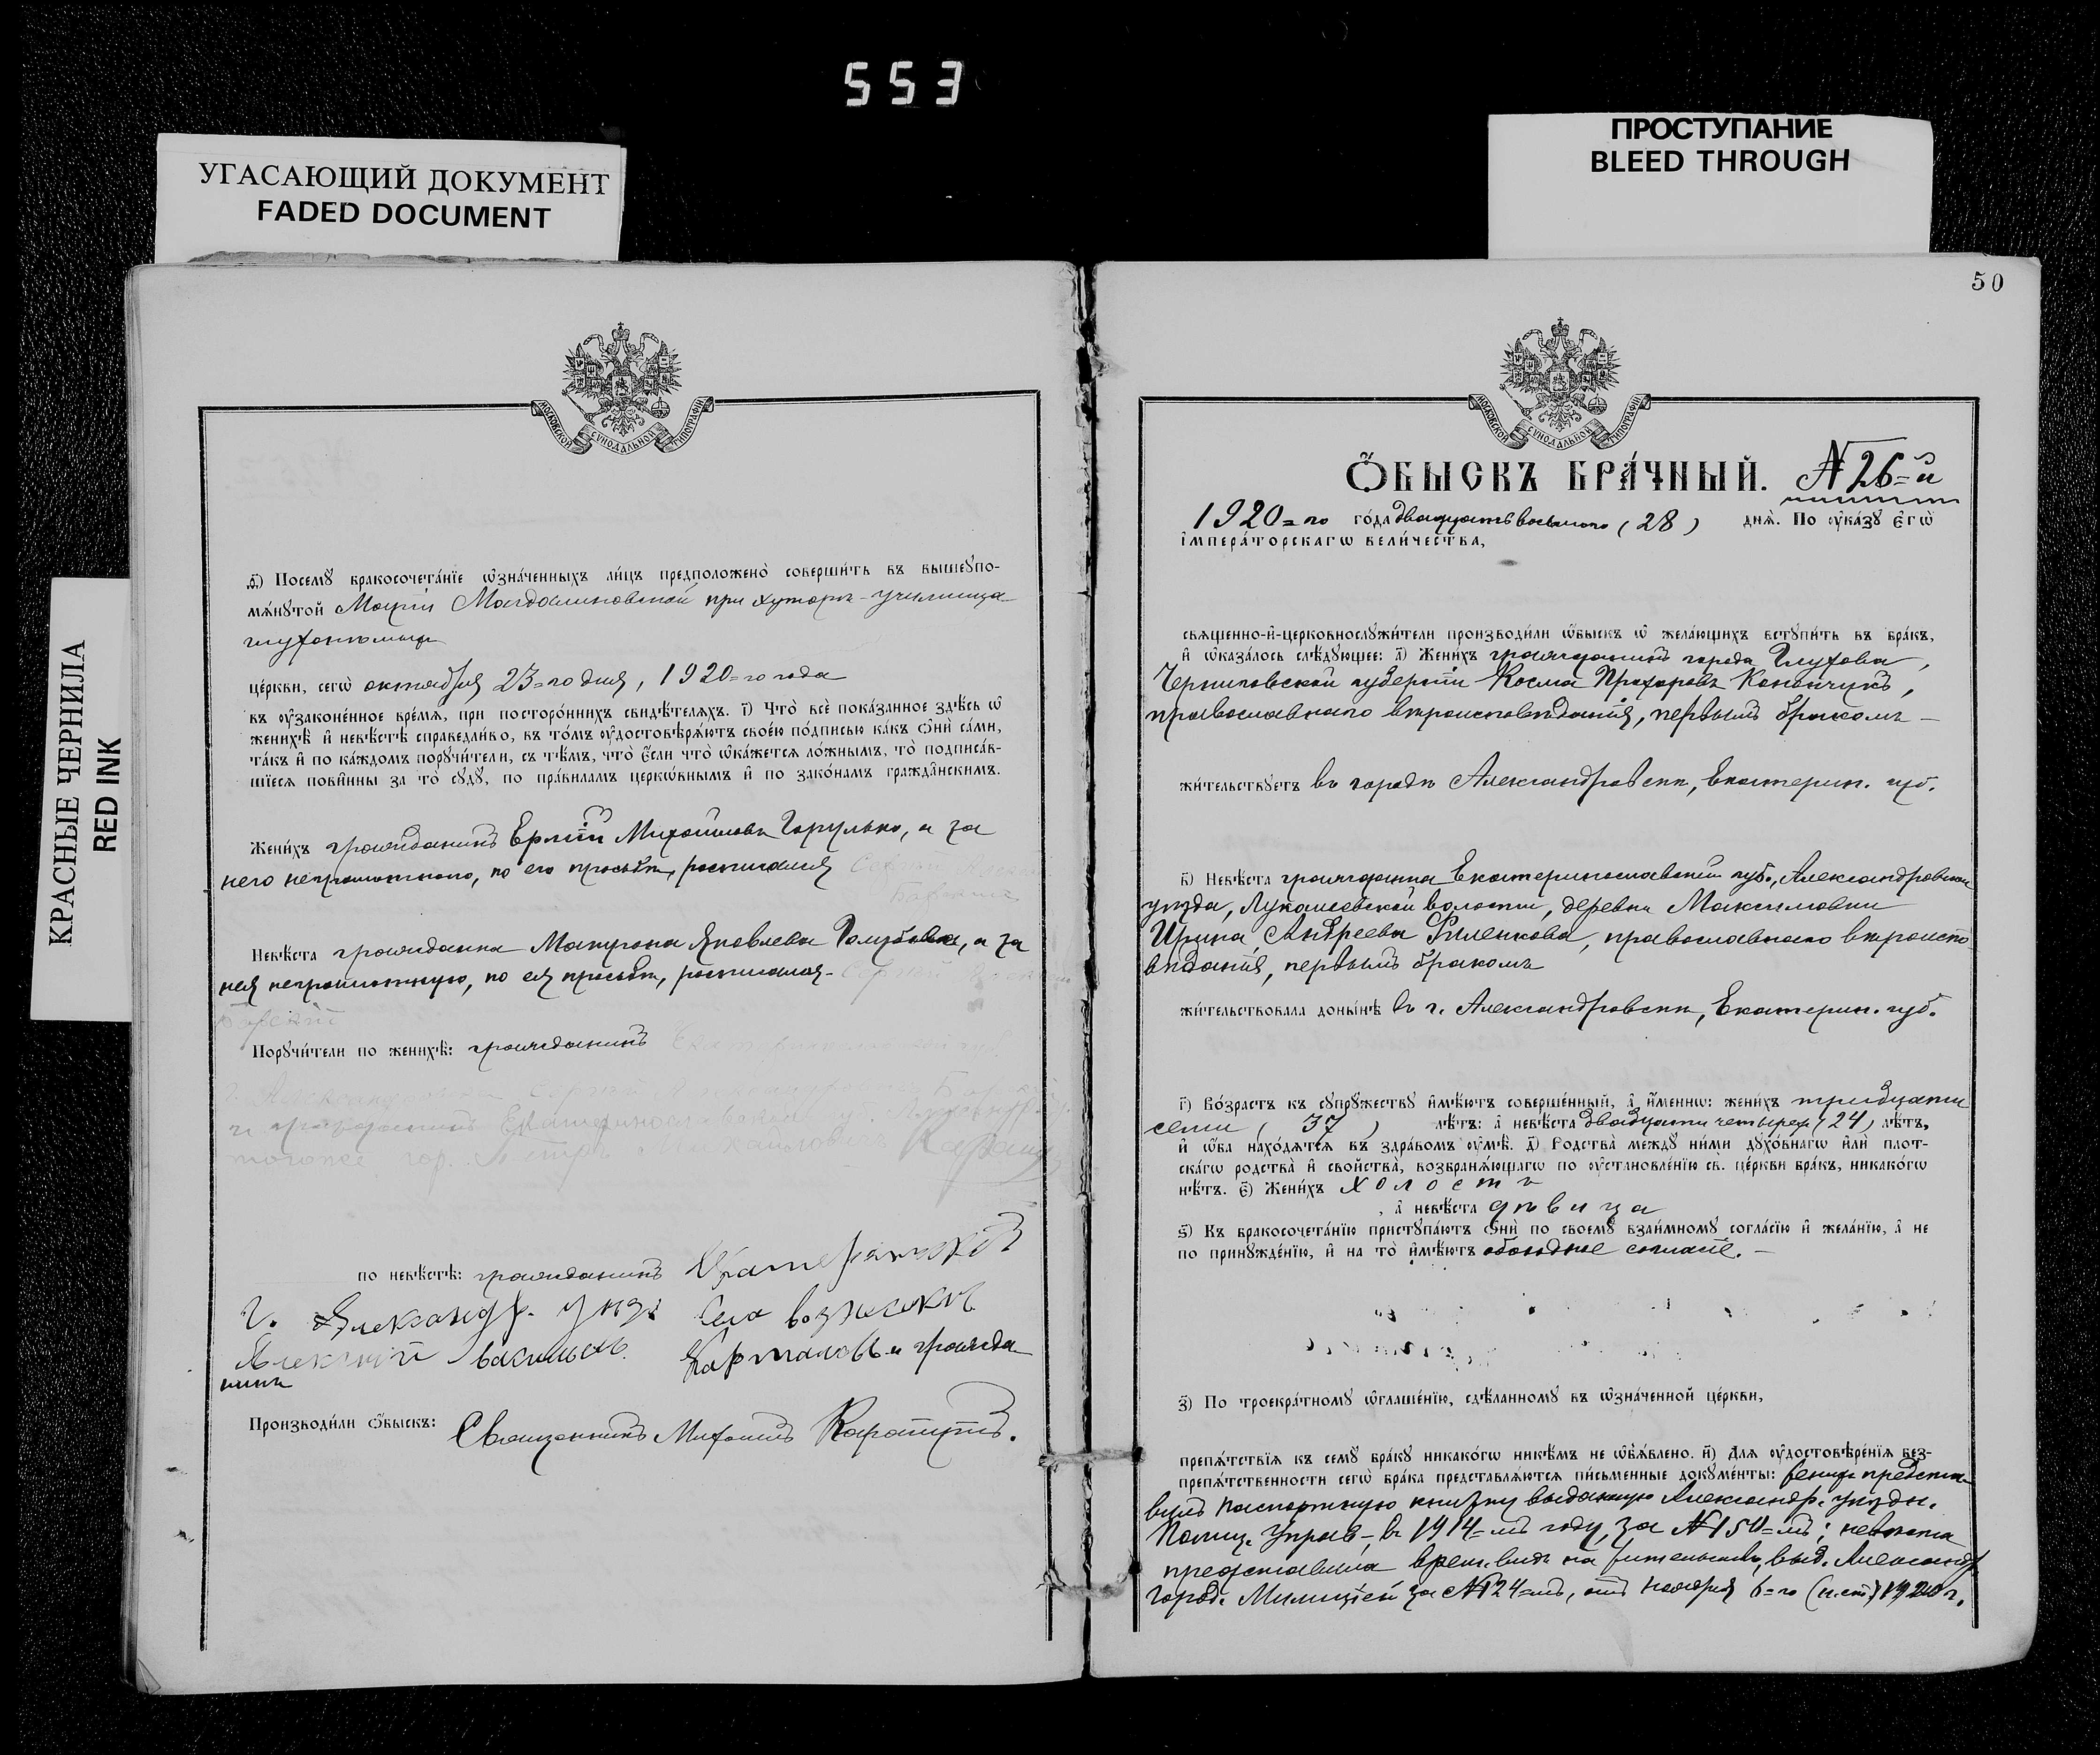 553
УГАСАЮЩИЙ ДОКУМЕНТ
FADED DOCUMENT
ПРОСТУПАНИЕ
BLEED THROUGH
КРАСНЫЕ ЧЕРНИЛА
RED INK
МОСКОВСКОЙ СѴНОДАЛЬНОЙ ТИПОГРАФІИ
ѳ҃) Посемꙋ бракосочета́нїе ѡ҆зна́ченныхъ ли́цъ предположено̀ соверши́ть въ вышеꙋпо-
мѧ́нꙋтой Марiи Магдалиновской при хуторѣ-училища
глухонѣмыхъ
це́ркви, сегѡ̀ октября 23=го дня, 1920=го года
въ ᲂу҆законе́нное вре́мѧ, при посторо́ннихъ свидѣ́телѧхъ. і҃) Что̀ всѐ пока́занное здѣ́сь ѡ
женихѣ̀ и҆ невѣ́стѣ справедли́во, въ то́мъ ᲂу҆достовѣрѧ́ютъ свое́ю по́дписью ка́къ ѻ҆нѝ са́ми,
та́къ и҆ по ка́ждомъ порꙋчи́тели, съ тѣ́мъ, что̀ є҆́сли что̀ ѡ҆ка́жетсѧ ло́жнымъ, то̀ подписа́в-
шїесѧ пови́нны за то̀ сꙋдꙋ̀, по пра́виламъ церкѡ́внымъ и҆ по зако́намъ гражда̑нскимъ.
Жени́хъ гражданинъ Ермiй Михайловъ Горулько, а за
него неграмотного, по его просьбѣ, росписался
Невѣ́ста гражданка Матрона Яковлева Голубова, а за
нея неграмотную, по ея просьбѣ, росписался
Порꙋчи́тели по женихѣ̀: гражданинъ
и гражданинъ
по невѣ́стѣ: гражданинъ
г. Александр. уѣз. села Вознесенков
Алексѣй Васильевъ и гражда
нинъ
Производи́ли ѻ҆́быскъ: Священникъ Михаилъ
50
МОСКОВСКОЙ СѴНОДАЛЬНОЙ ТИПОГРАФІИ
Ѻ҆́БЫСКЪ БРА́ЧНЫЙ. №26=й
1920=го го́да двадцать восьмого (28) днѧ̀. По ᲂу҆ка́зꙋ є҆гѡ̀
і҆мпера́торскагѡ вели́чества,
свѧще́нно-и҆-церковнослꙋжи́тели производи́ли ѻ҆́быскъ ѡ҆ жела́ющихъ встꙋпи́ть въ бра́къ,
и҆ ѡ҆каза́лось слѣ́дꙋющее: а҃) Жени́хъ гражданинъ города Глухова,
Черниговской губернiи Косма Прохоровъ Конончукъ,
православного вѣроисповѣданiя, первымъ бракомъ —
жи́тельствꙋетъ въ городѣ Александровскѣ, Екатерин. губ.
в҃) Невѣ́ста гражданка Екатеринославской губ., Александровскаго
уѣзда, Лукашевской волости, деревни Максимовки
Ирина Андреева Филенкова, православного вѣроиспо
вѣданiя, первымъ бракомъ
жи́тельствовала доны́нѣ въ г. Александровскѣ, Екатерин. губ.
г҃) Во́зрастъ къ сꙋпрꙋ́жествꙋ и҆мѣ́ютъ соверше́нный, а҆ и҆́меннѡ: жени́хъ тридцати
семи ( 37 ) лѣ́тъ: а҆ невѣ́ста двадцати четырех (24) лѣ́тъ,
и҆ ѻ҆́ба нахо́дѧтсѧ въ здра́вомъ ᲂу҆мѣ̀. д҃) Родства̀ междꙋ̀ ни́ми дꙋхо́внагѡ и҆лѝ пло́т-
скагѡ родства̀ и҆ сво́йства, возбранѧ́ющагѡ по ᲂу҆становле́нїю св. це́ркви бра́къ, никако́гѡ
нѣ́тъ. є҃) Жени́хъ холостъ
, а҆ невѣ́ста дѣвица
ѕ҃) Къ бракосочета́нїю пристꙋпа́ютъ ѻ҆нѝ по своемꙋ̀ взаи́мномꙋ согла́сїю и҆ жела́нїю, а҆ не
по принꙋжде́нїю, и҆ на то̀ и҆мѣ́ютъ обоюдное согласiе. —
з҃) По троекра́тномꙋ ѡ҆глаше́нїю, сдѣ́ланномꙋ въ ѡ҆зна́ченной це́ркви,
препѧ́тствїѧ къ семꙋ̀ бра́кꙋ никако́гѡ никѣ́мъ не ѡ҆б̾ѧ́влено. и҃) Для ᲂу҆достовѣре́нїѧ без-
препѧ́тственности сегѡ̀ бра́ка представлѧ́ютсѧ пи́сьменные докꙋме́нты: жених предста-
вилъ паспортную книжку выданную Александр. уѣздн.
Полиц. Управ— въ 1914=мъ году, за №150=мъ; невѣста
представила врем. видъ на жительство, выд. Александр
город. Милицiей за №124=мъ, отъ ноября 6=го (н.ст.) 1920 г.